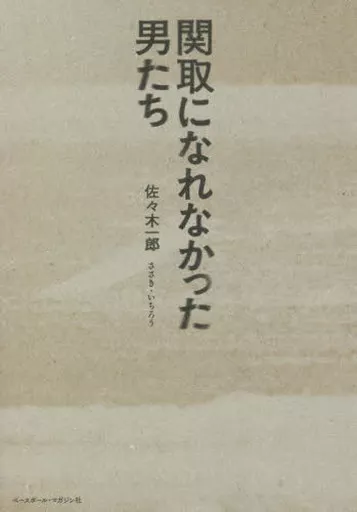 関取になれなかった
男たち
佐々木一郎
ささき・いちろう
ベースボール・マガジン社